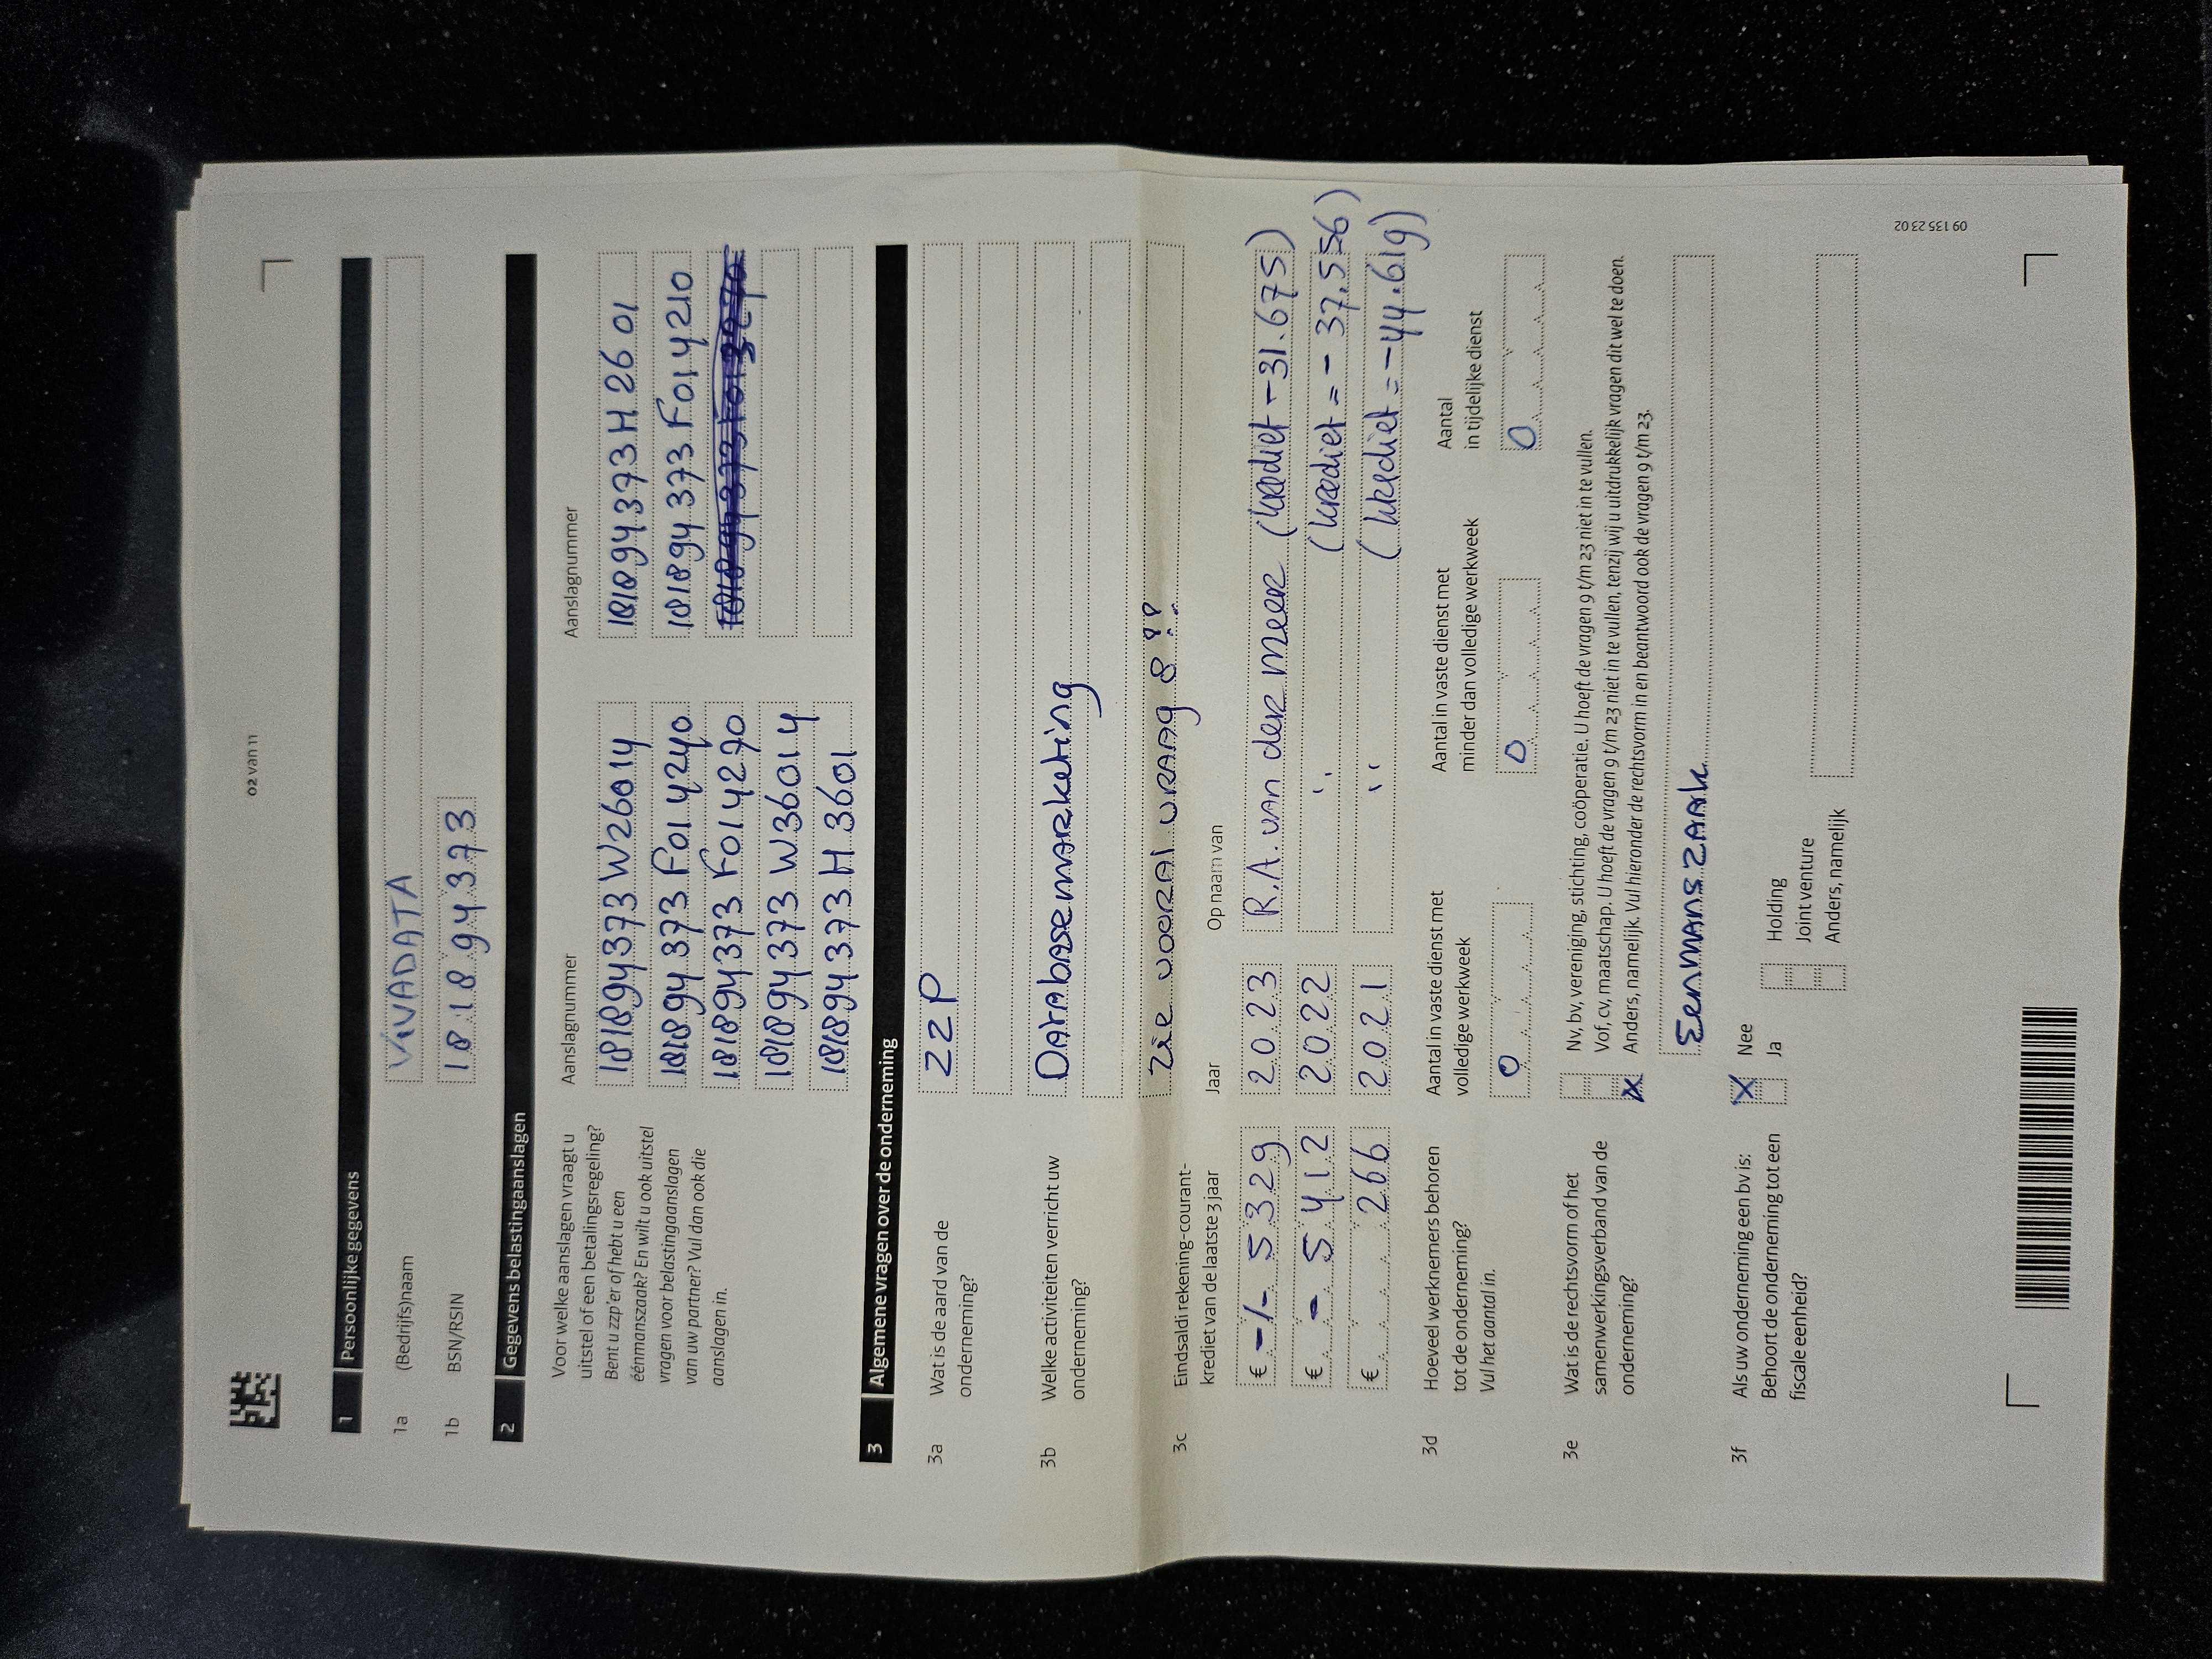 02 van 11
1 Persoonlijke gegevens
1a (Bedrijfs)naam VIVADATA
1b BSN/RSIN 181894373
2 Gegevens belastingaanslagen
Voor welke aanslagen vraagt u
uitstel of een betalingsregeling?
Bent u zzp'er of hebt u een
éénmanszaak? En wilt u ook uitstel
vragen voor belastingaanslagen
van uw partner? Vul dan ook die
aanslagen in.
Aanslagnummer Aanslagnummer
181894373 W26014 181894373 H 2601
181894373 F014240 181894373 F014210
181894373 F014270
181894373 W36014
181894373 H 3601
3 Algemene vragen over de onderneming
3a Wat is de aard van de
onderneming?
ZZP
3b Welke activiteiten verricht uw
onderneming?
Databasemarketing
Zie vooral vraag 8!!
3c Eindsaldi rekening-courant-
krediet van de laatste 3 jaar Jaar Op naam van
€ -/- 5329 2023 R.A. van der Meer (krediet -31.675)
€ - 5412 2022 " (krediet = - 37.556)
€ 266 2021 " (krediet = -44.619)
3d Hoeveel werknemers behoren
tot de onderneming?
Vul het aantal in.
Aantal in vaste dienst met
volledige werkweek
0
Aantal in vaste dienst met
minder dan volledige werkweek
0
Aantal
in tijdelijke dienst
0
3e Wat is de rechtsvorm of het
samenwerkingsverband van de
onderneming?
Nv, bv, vereniging, stichting, coöperatie. U hoeft de vragen 9 t/m 23 niet in te vullen.
Vof, cv, maatschap. U hoeft de vragen 9 t/m 23 niet in te vullen, tenzij wij u uitdrukkelijk vragen dit wel te doen.
X Anders, namelijk. Vul hieronder de rechtsvorm in en beantwoord ook de vragen 9 t/m 23.
Eenmanszaak
3f Als uw onderneming een bv is:
Behoort de onderneming tot een
fiscale eenheid?
X Nee
Ja
Holding
Joint venture
Anders, namelijk
09 135 23 02